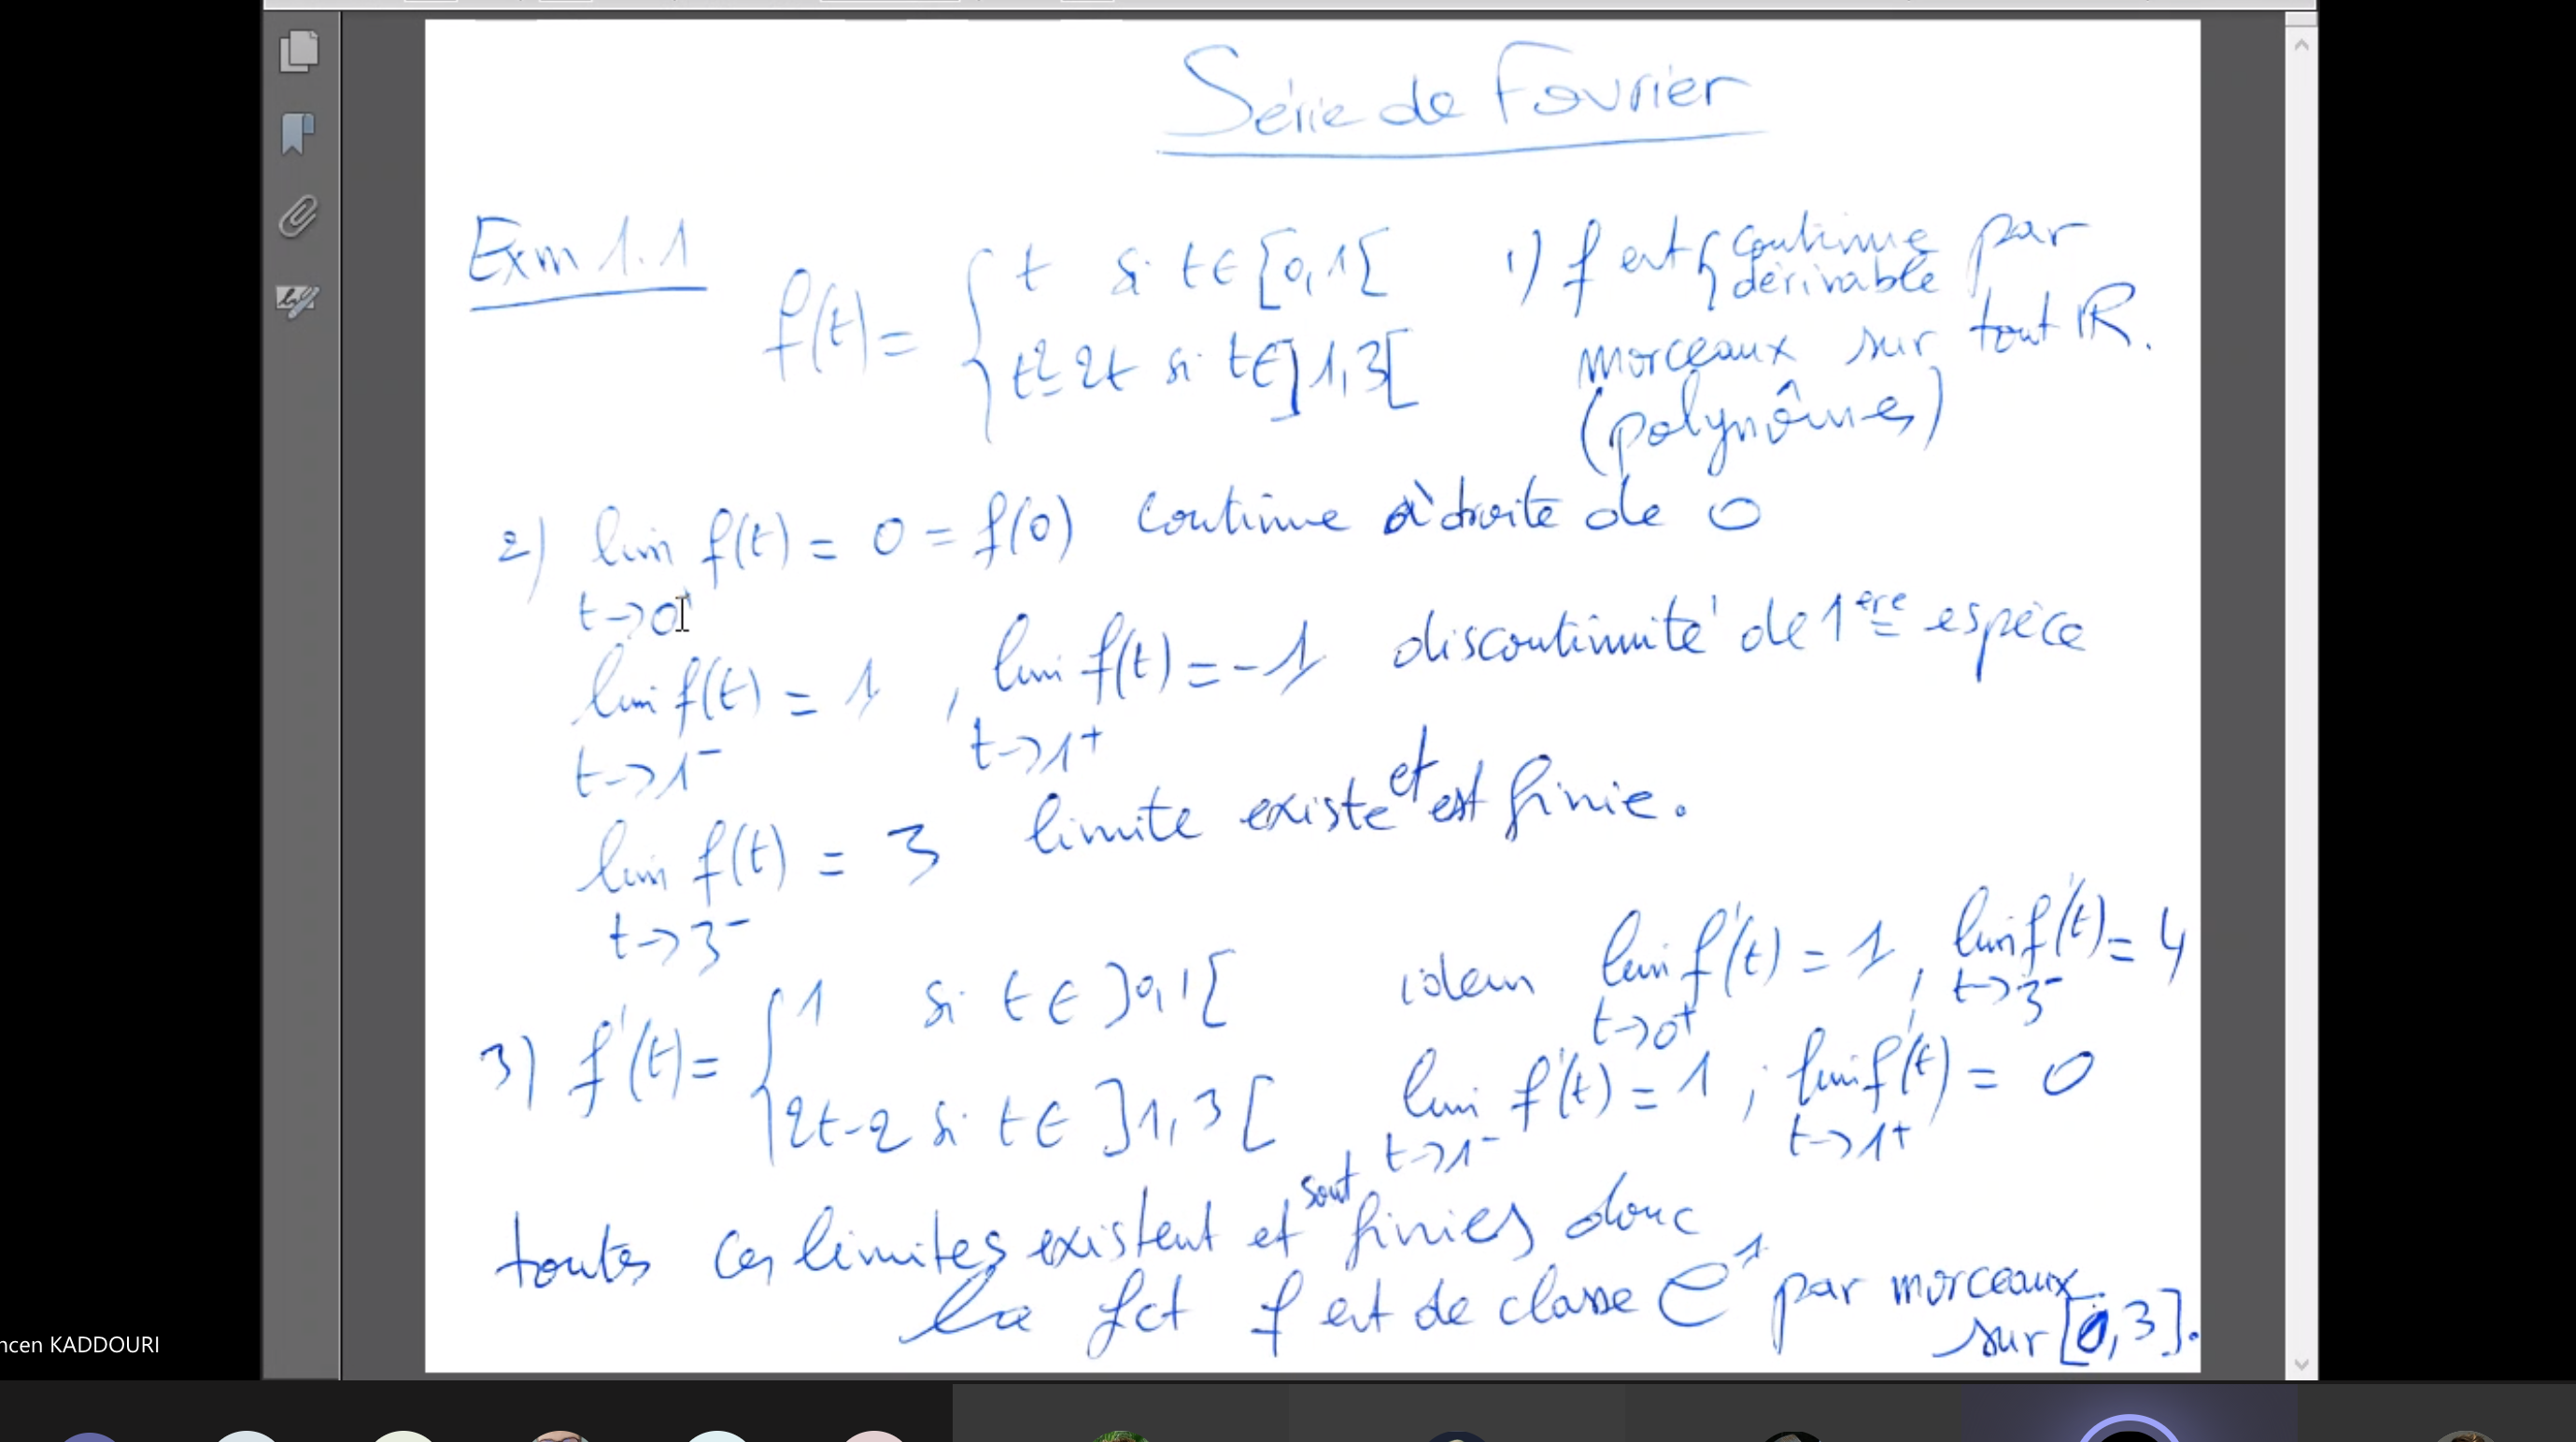 Série de Fourier
Exm 1.1
f(t) = { t si t ∈ [0,1[
t² - 2t si t ∈ ]1,3[
1) f est { continue
dérivable
par
morceaux sur tout ℝ.
(polynômes)
2) lim f(t) = 0 = f(0) continue à droite de 0
t→0⁺
lim f(t) = 1 , lim f(t) = -1 discontinuité de 1ère espèce
t→1⁻ t→1⁺
lim f(t) = 3 limite existe et est finie.
t→3⁻
3) f'(t) = { 1 si t ∈ ]0,1[
2t-2 si t ∈ ]1,3[
idem lim f'(t) = 1 , lim f'(t) = 4
t→0⁺ t→3⁻
lim f'(t) = 1 ; lim f'(t) = 0
t→1⁻ t→1⁺
toutes ces limites existent et sont finies donc
la fct f est de classe C¹ par morceaux
sur [0,3].
ncen KADDOURI